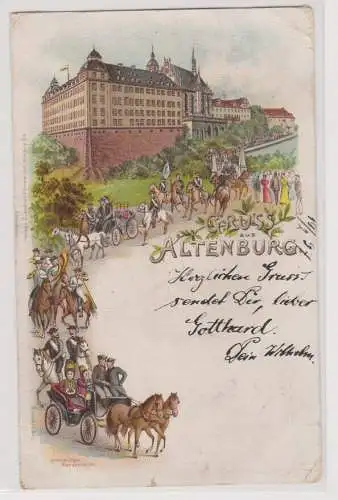 GRUSS
AUS
ALTENBURG
Herzlichen Gruss
sendet Dir, lieber
Gotthard.
Dein Wilhelm.